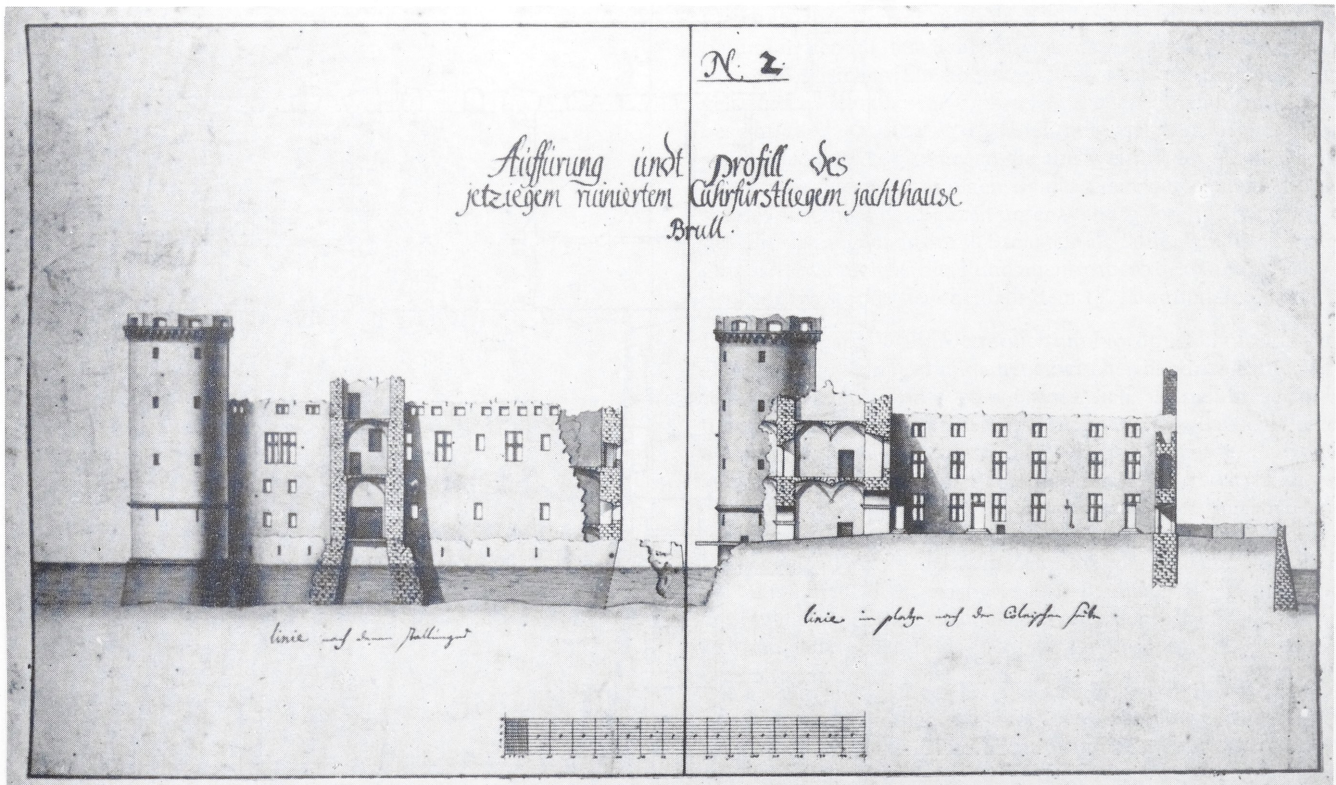 N. 2.
Auffürung undt profill des
jetziegem ruiniertem Cuhrfürstliegem jachthause
Brull.
linie nach
linie im platze nach der Cölnischen